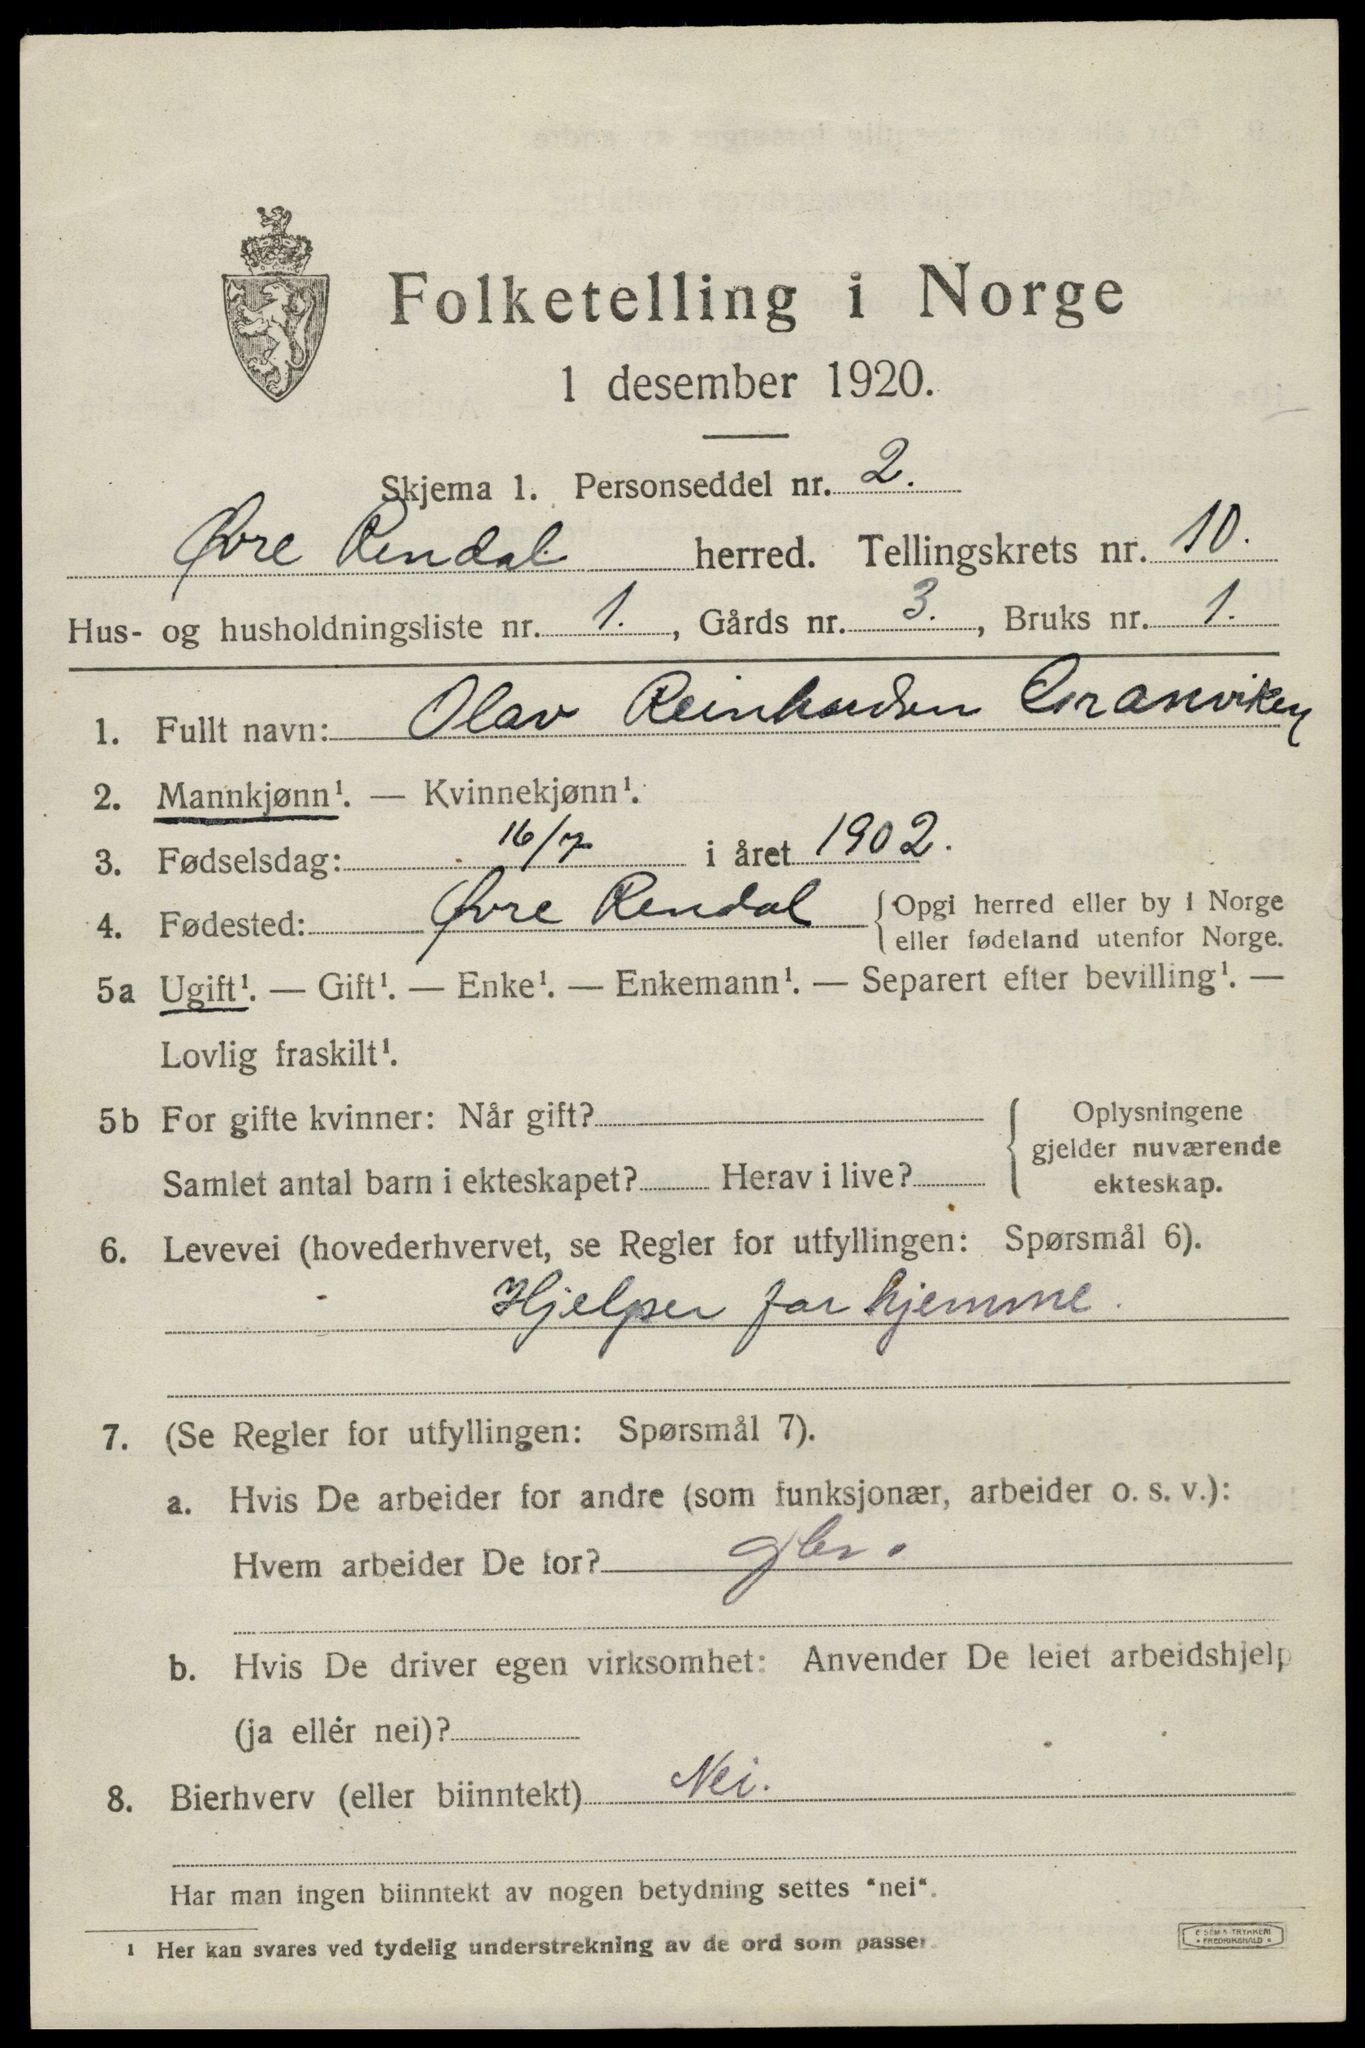 Folketelling i Norge
1 desember 1920.
Skjema 1. Personseddel nr. 2.
Øvre Rendal herred. Tellingskrets nr. 10.
Hus- og husholdningsliste nr. 1., Gårds nr. 3., Bruks nr. 1.
1. Fullt navn: Olav Reinhardsen Granviken
2. Mannkjønn¹. — Kvinnekjønn¹.
3. Fødselsdag: 16/7 i året 1902.
4. Fødested: Øvre Rendal {Opgi herred eller by i Norge
eller fødeland utenfor Norge.
5a Ugift¹. — Gift¹. — Enke¹. — Enkemann¹. — Separert efter bevilling¹. —
Lovlig fraskilt¹.
5b For gifte kvinner: Når gift? { Oplysningene
gjelder nuværende
Samlet antal barn i ekteskapet? Herav i live? ekteskap.
6. Levevei (hovederhvervet, se Regler for utfyllingen: Spørsmål 6).
Hjelper far hjemme.
7. (Se Regler for utfyllingen: Spørsmål 7).
a. Hvis De arbeider for andre (som funksjonær, arbeider o. s. v.):
Hvem arbeider De for?
b. Hvis De driver egen virksomhet: Anvender De leiet arbeidshjelp
(ja ellér nei)?
8. Bierhverv (eller biinntekt) Nei.
Har man ingen biinntekt av nogen betydning settes "nei".
¹ Her kan svares ved tydelig understrekning av de ord som passer.
E SEM'S TRYKKERI
FREDRIKSHALD